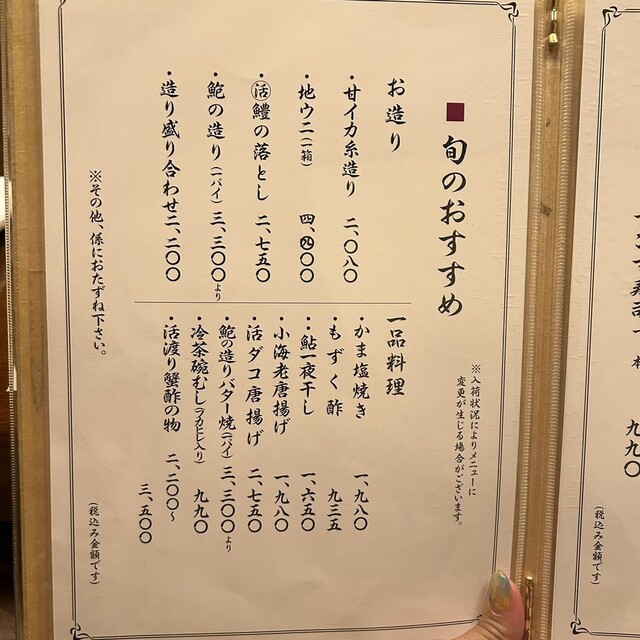 ■ 旬のおすすめ
※入荷状況によりメニューに
変更が生じる場合がございます。
お造り
・甘イカ糸造り 二、〇八〇
・地ウニ(一箱) 四、四〇〇
・㊗鱧の落とし 二、七五〇
・鮑の造り(一パイ) 三、三〇〇より
・造り盛り合わせ 二、二〇〇
※その他、係におたずね下さい。
一品料理
・かま塩焼き 一、九八〇
・もずく酢 九三五
・・鮎一夜干し 一、六五〇
・小海老唐揚げ 一、九八〇
・活ダコ唐揚げ 二、七五〇
・鮑の造りバター焼(一パイ) 三、三〇〇より
・冷茶碗むし(フカヒレ入り) 九九〇
・活渡り蟹酢の物 二、二〇〇〜
三、五〇〇
(税込み金額です)
九九〇
(税込み金額です)